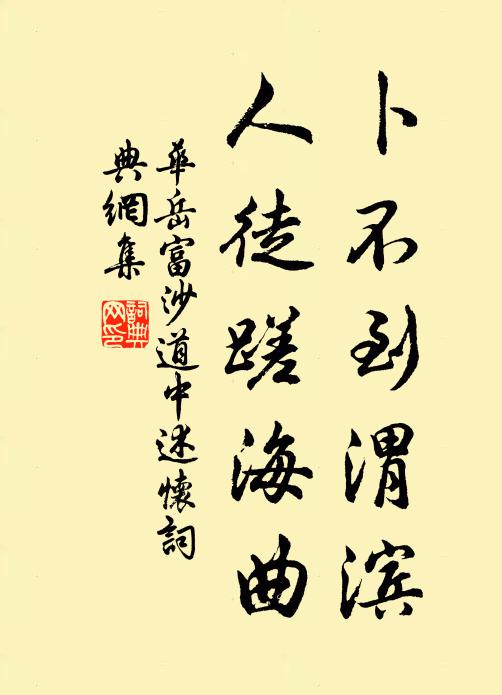 卜不到渭滨
人徒蹉海曲
華岳富沙道中述懷詞
典網集
詞典网印